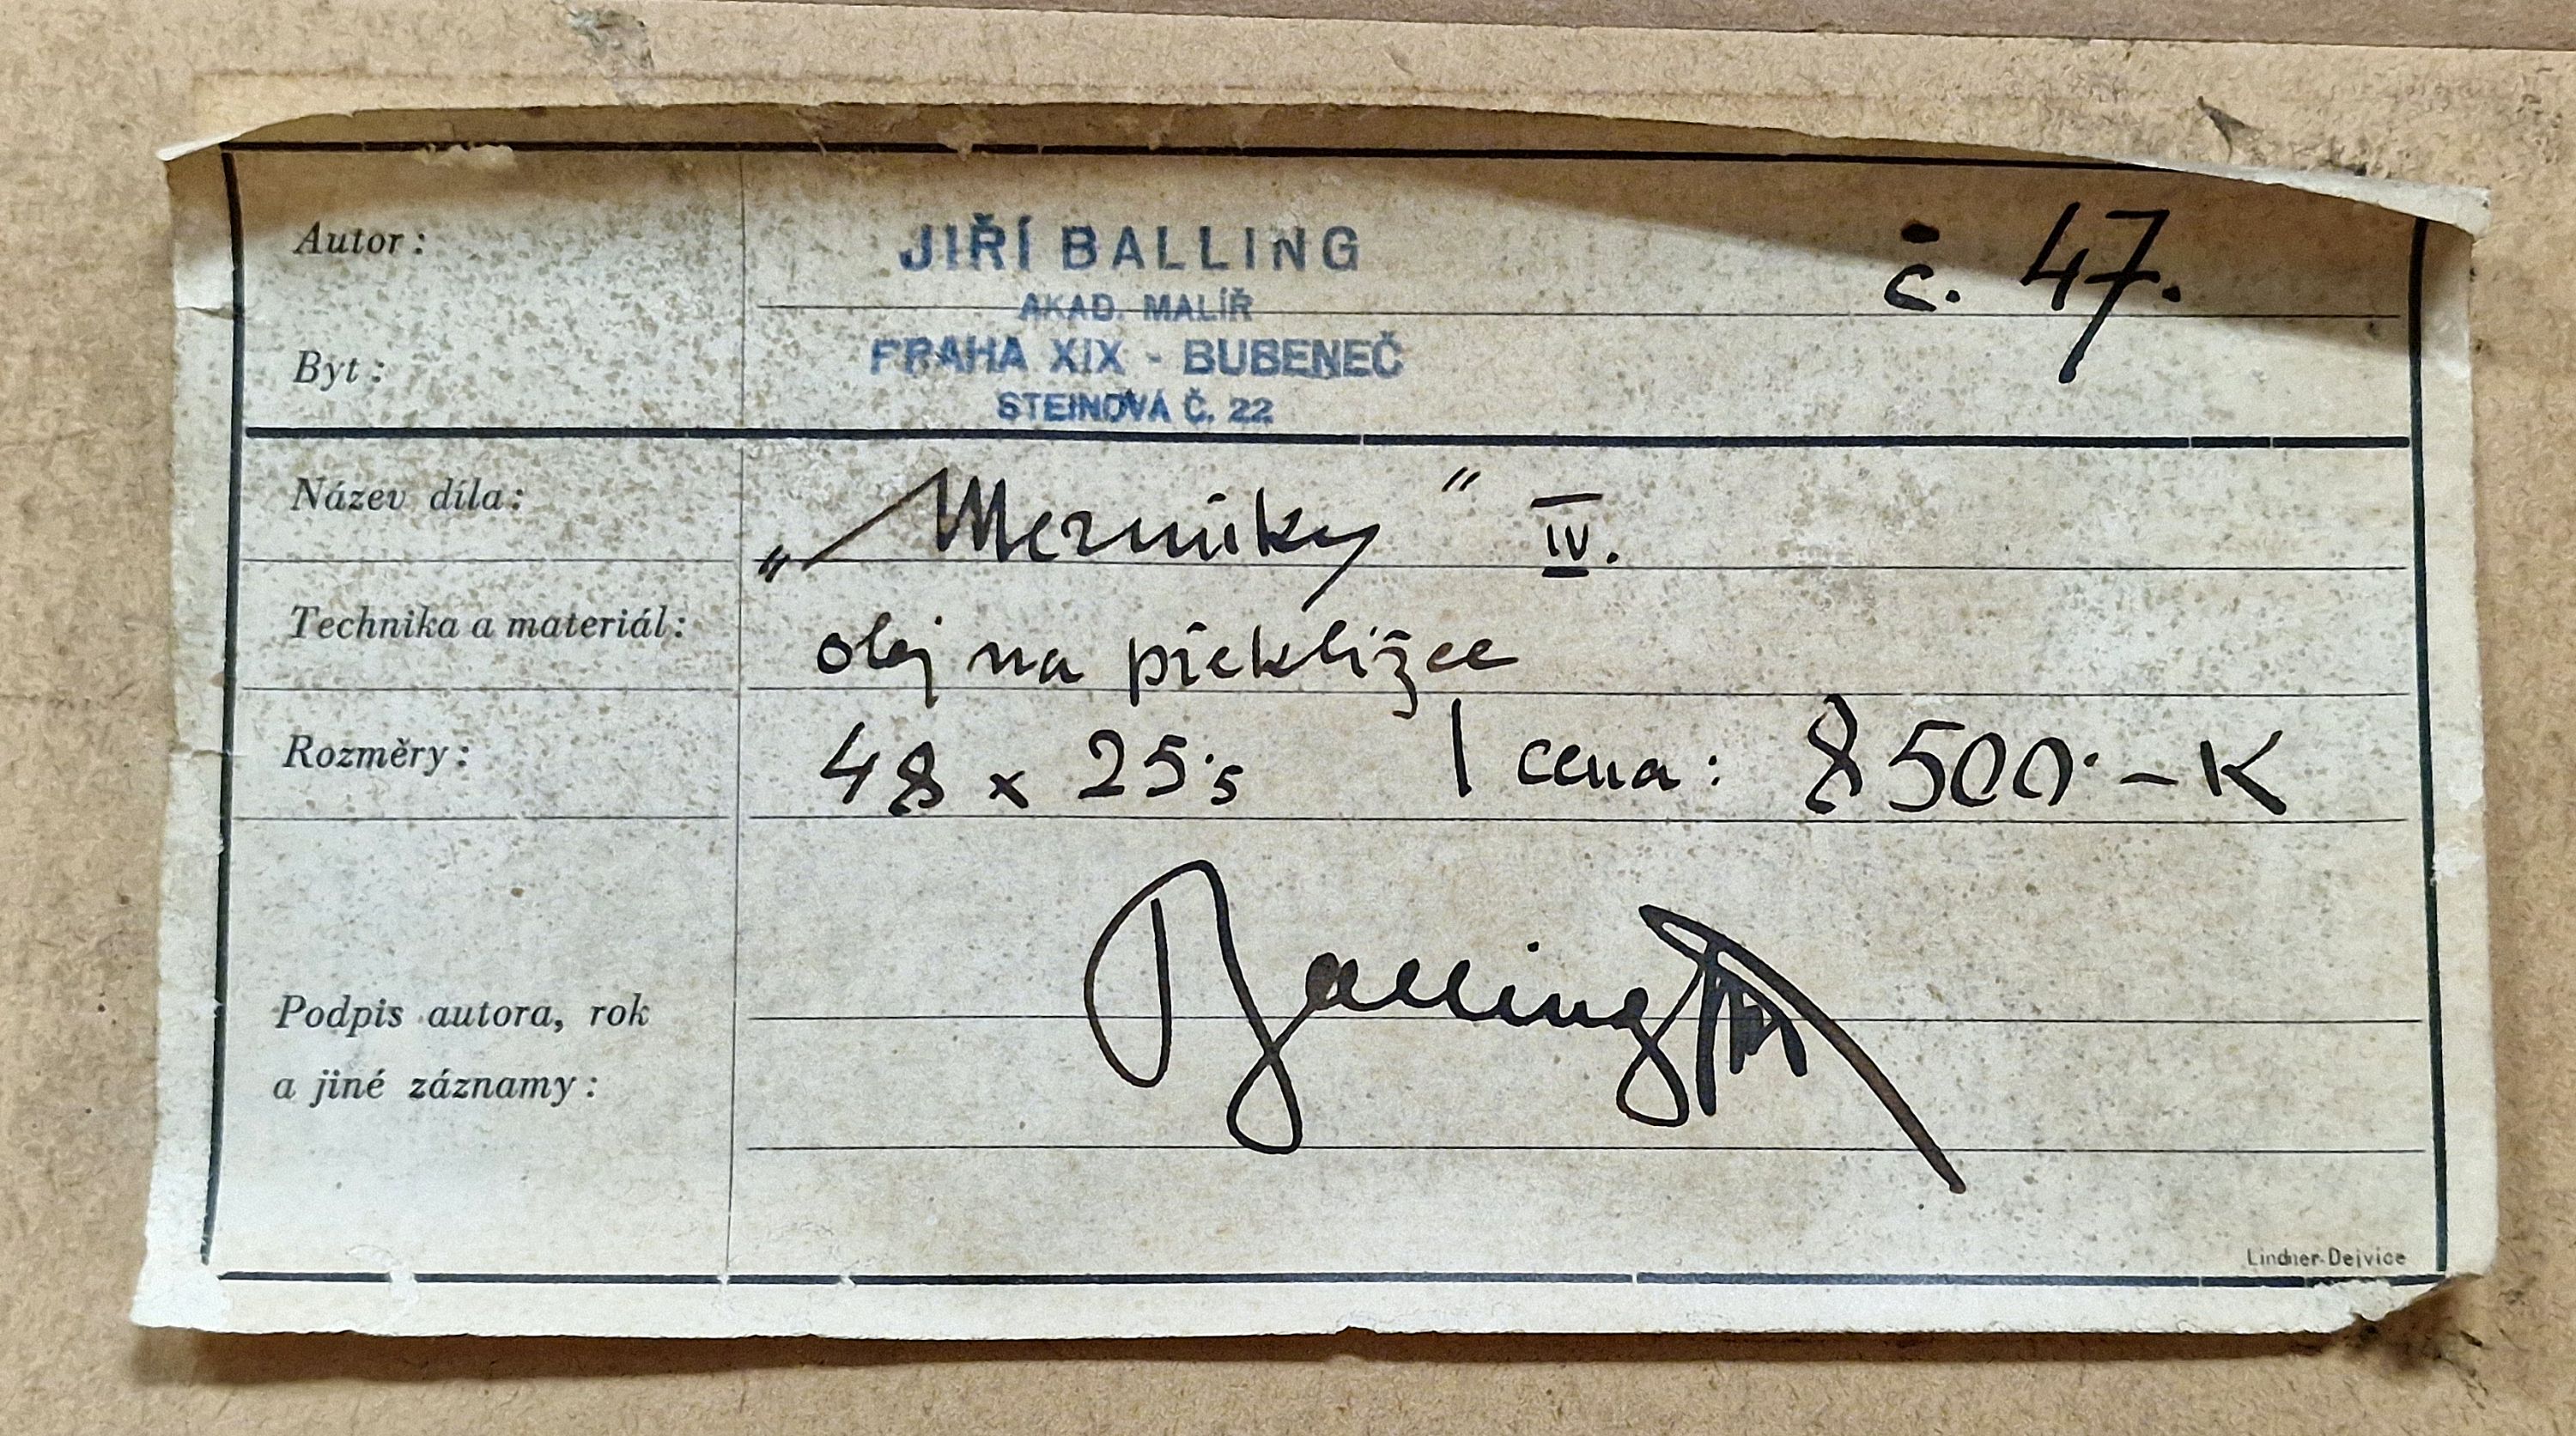 Autor: JIŘÍ BALLING č. 47.
AKAD. MALÍŘ
Byt: PRAHA XIX - BUBENEČ
STEINOVA Č. 22
Název díla: „Merníky" IV.
Technika a materiál: olej na překližce
Rozměry: 48 x 25,5 | cena: 8500·-K
Balling
Podpis autora, rok
a jiné záznamy:
Lindner-Dejvice